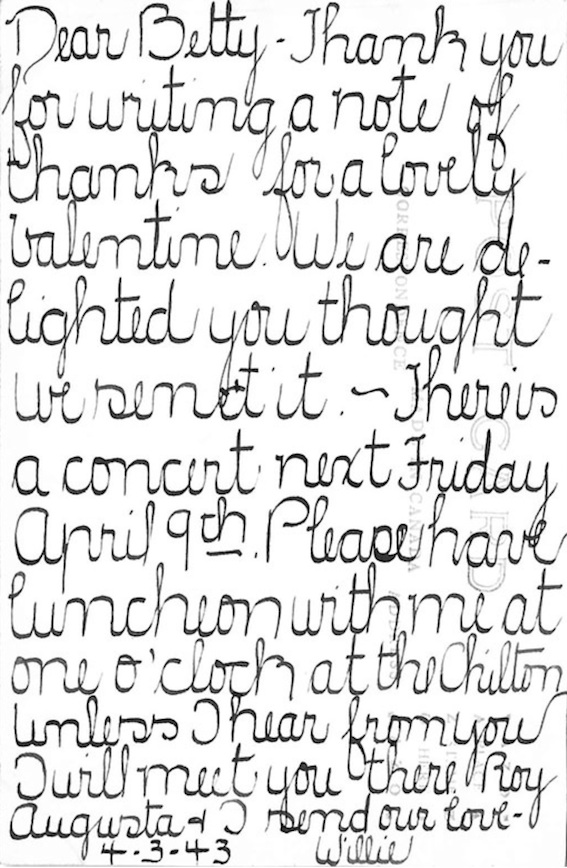 Dear Betty - Thank you
for writing a note of
thanks for a lovely
Valentine. We are de-
lighted you thought
we sent it. ~ There is
a concert next Friday
April 9th. Please have
luncheon with me at
one o'clock at the Chilton
unless I hear from you
I will meet you there. Roy
Augusta & I send our love -
4-3-43 Willie
POST CARD
CORRESPONDENCE
CANADA
ADDRESS